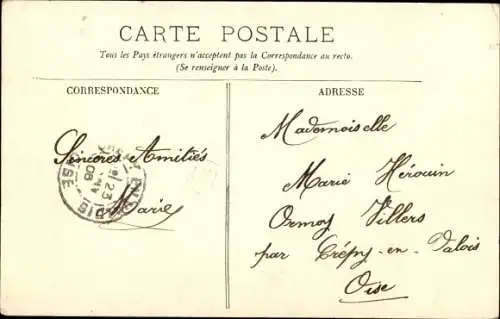 CARTE POSTALE
Tous les Pays étrangers n'acceptent pas la Correspondance au recto.
(Se renseigner à la Poste).
CORRESPONDANCE
ADRESSE
Sincères Amitiés
Marie
Mademoiselle
Marie Hérouin
Ormoy Villers
par Crépy-en-Valois
Oise
23
08
OISE